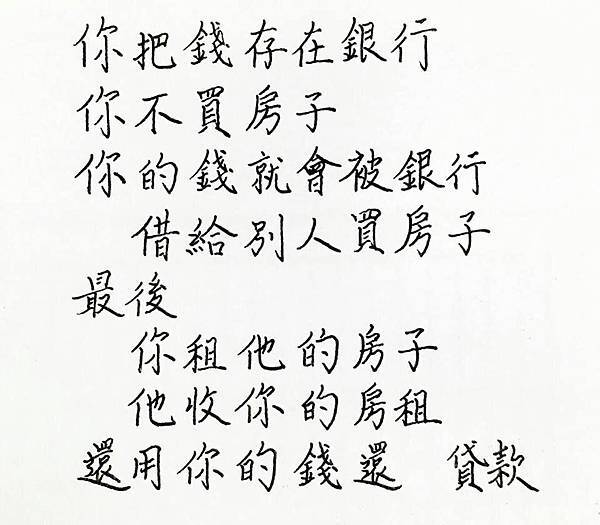 你把錢存在銀行
你不買房子
你的錢就會被銀行
借給別人買房子
最後
你租他的房子
他收你的房租
還用你的錢還 貸款